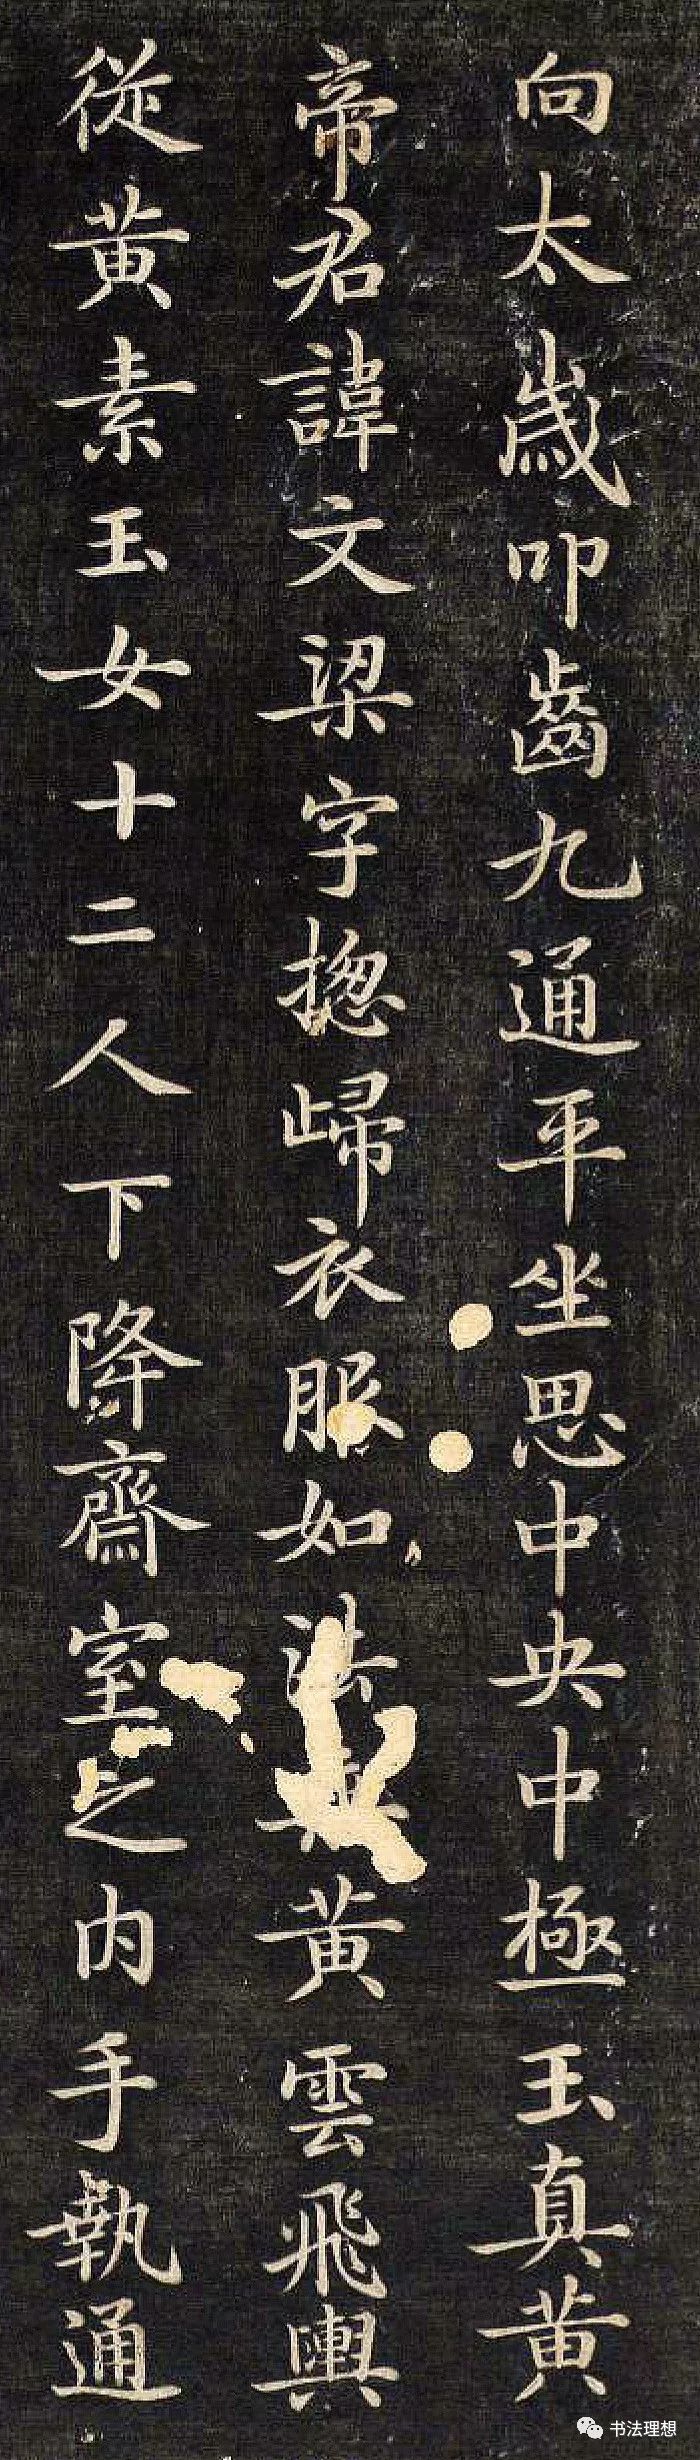 向太歲叩齒九通平坐思中央中極玉真黃
帝君諱文梁字揔歸衣服如法黃雲飛輿
從黃素玉女十二人下降齋室之內手執通
书法理想